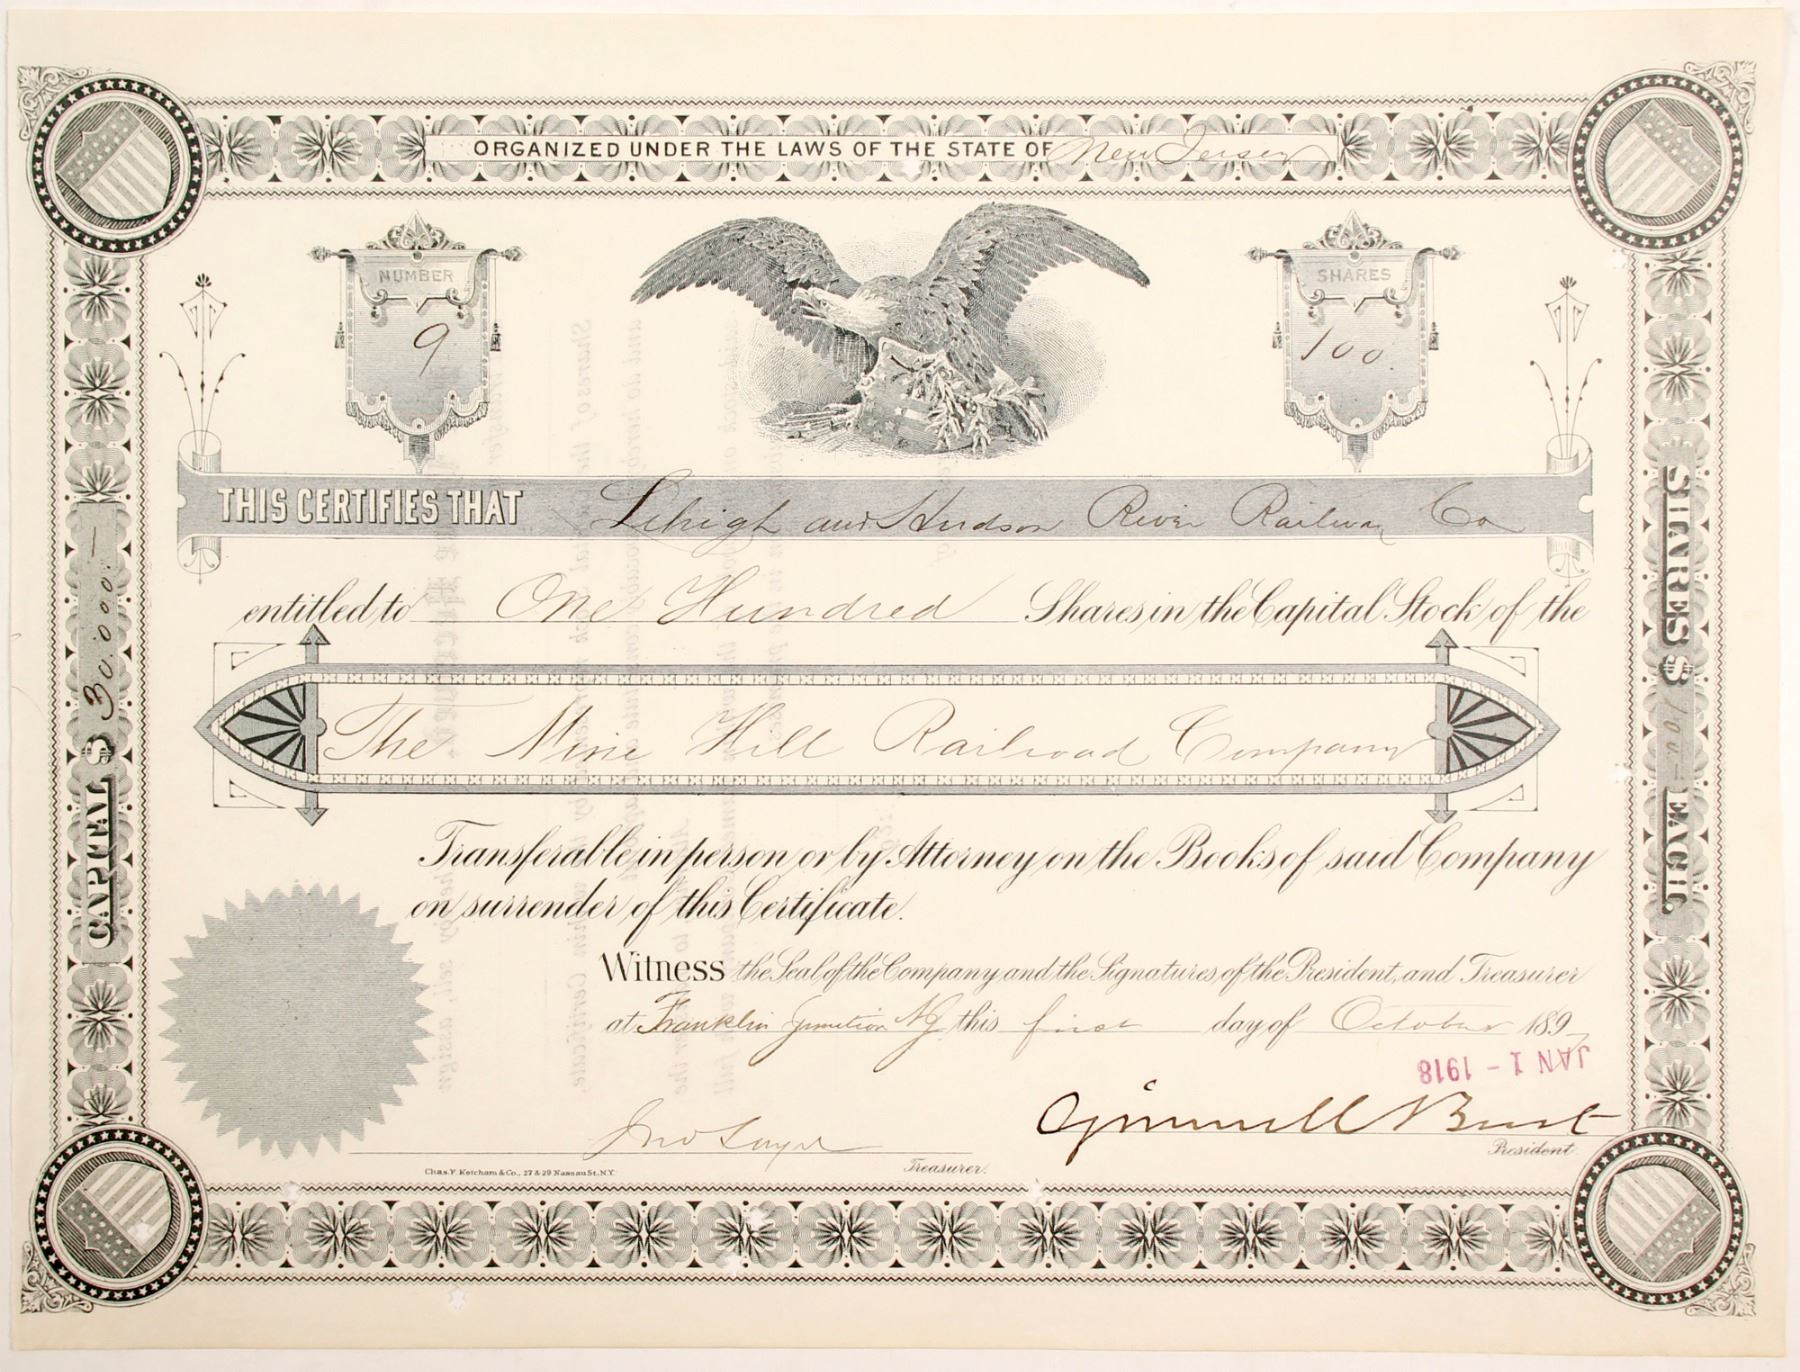 ORGANIZED UNDER THE LAWS OF THE STATE OF New Jersey
NUMBER
9
SHARES
100
THIS CERTIFIES THAT Lehigh and Hudson River Railway Co
entitled to One Hundred Shares in the Capital Stock of the
The Mine Hill Railroad Company
Transferable in person or by Attorney on the Books of said Company
on surrender of this Certificate.
Witness the Seal of the Company and the Signatures of the President, and Treasurer
at Franklin Junction NJ this first day of October 1897
JAN 1 - 1918
Grinnell Burt
President
Jno Sayer
Treasurer.
Chas. F. Ketcham & Co., 27 & 29 Nassau St. N.Y.
CAPITAL $ 30.000.—
SHARES $ 100.- EACH.